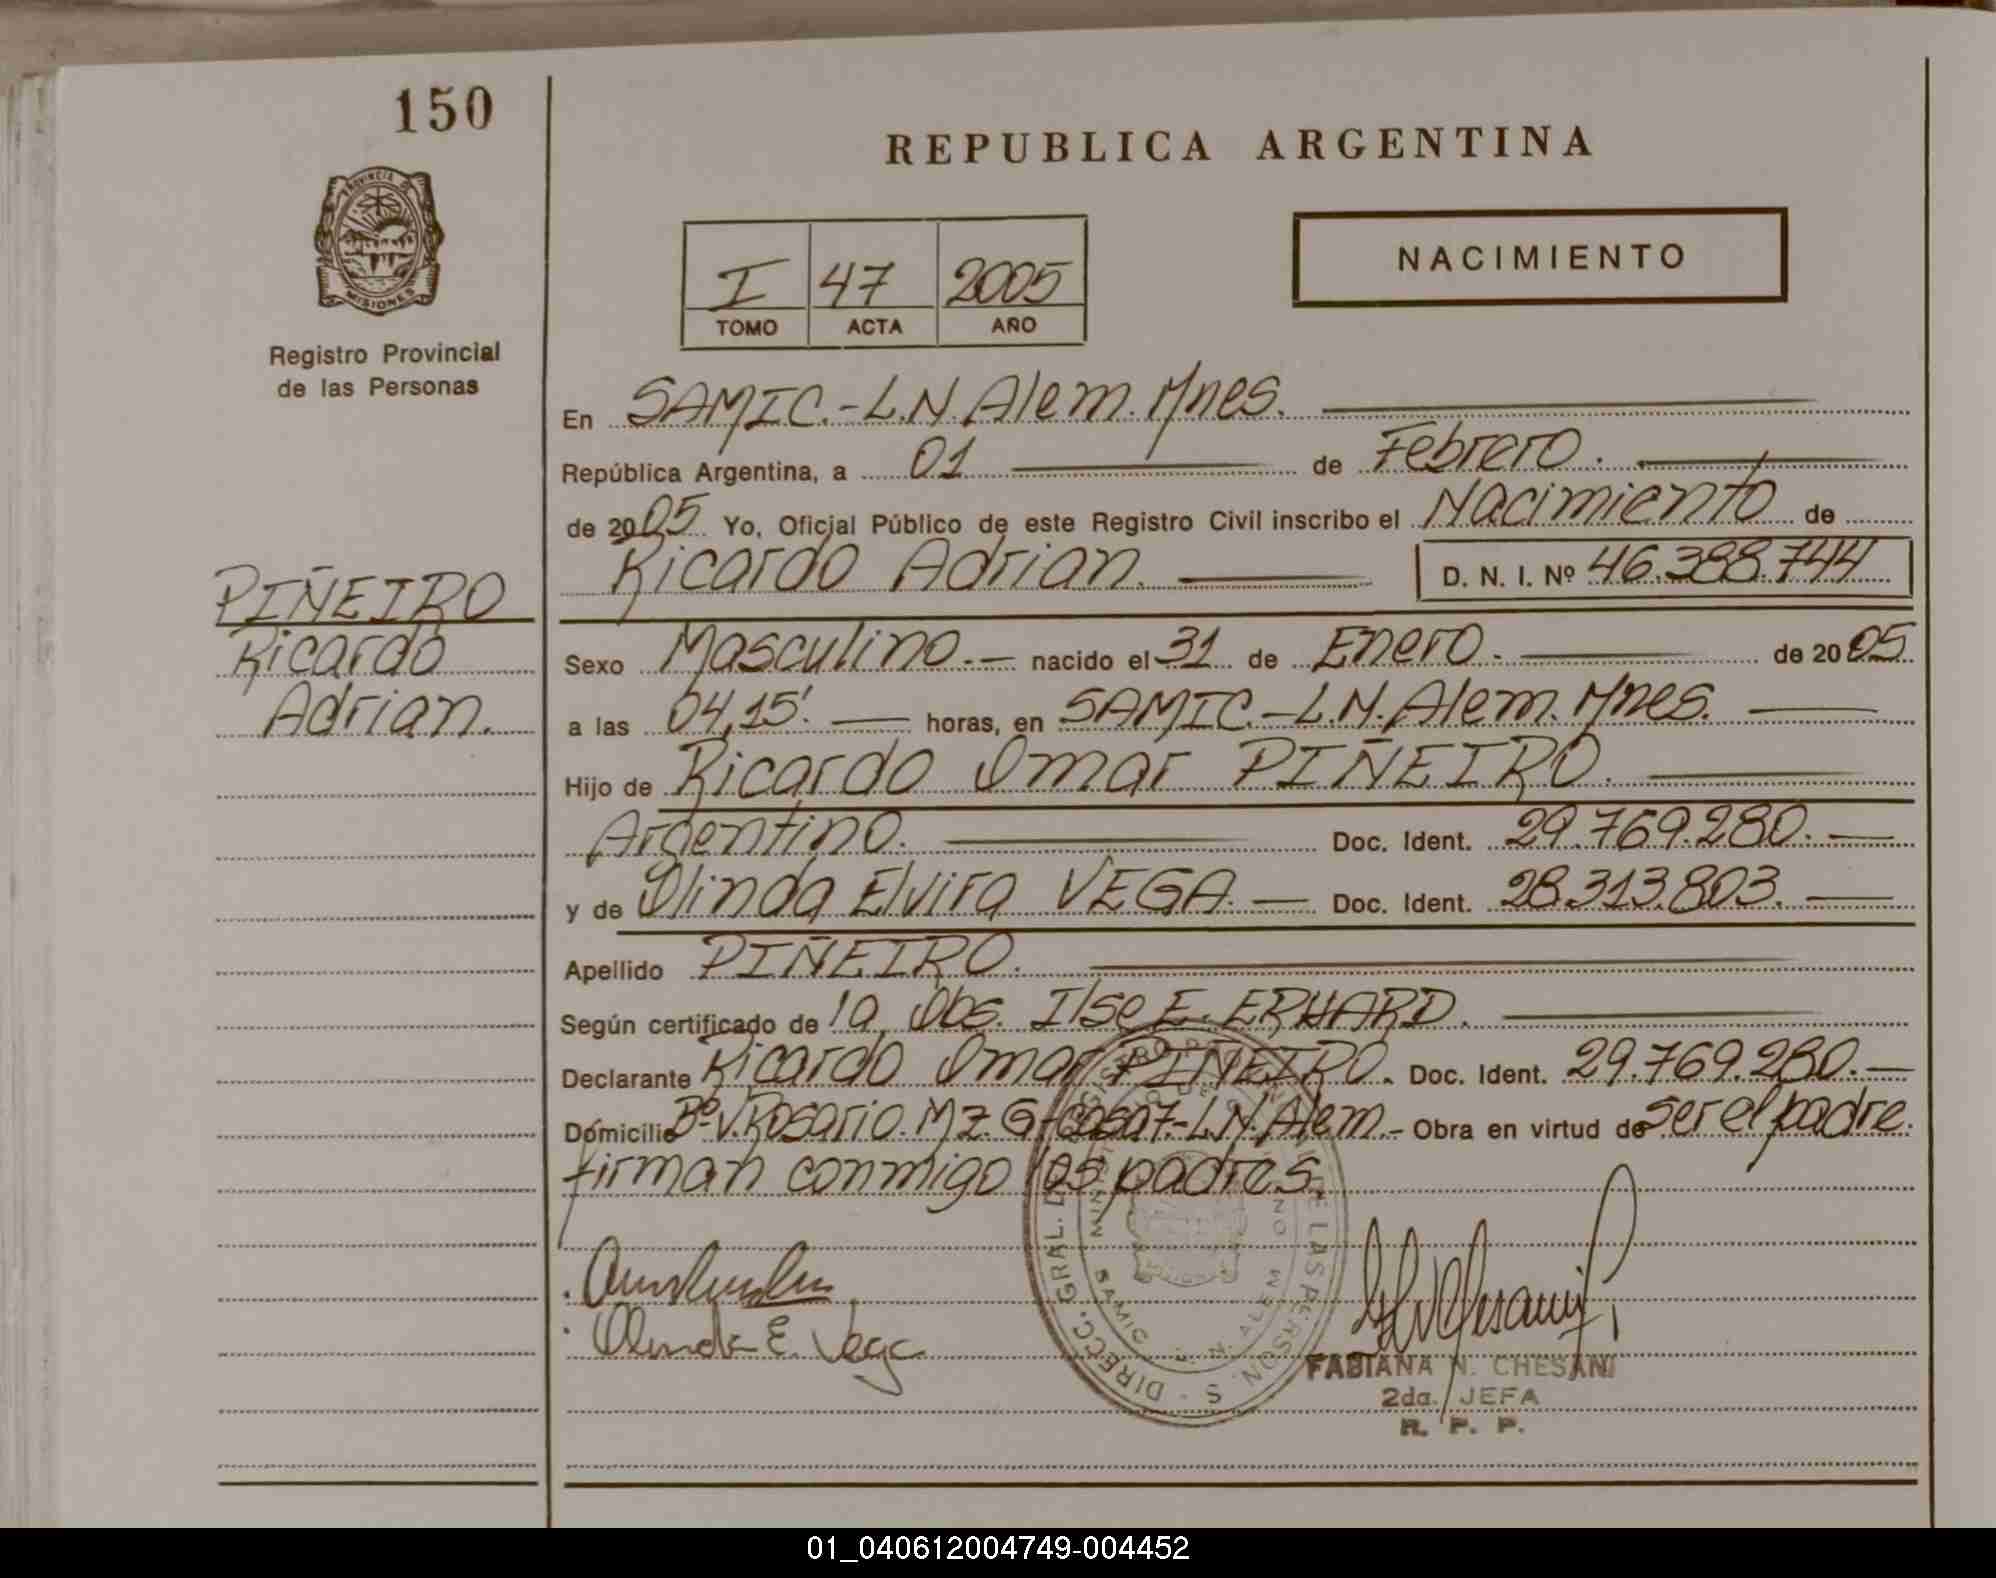 150
REPUBLICA ARGENTINA
PROVINCIA DE
MISIONES
NACIMIENTO
I 47 2005
TOMO ACTA AÑO
Registro Provincial
de las Personas
En SAMIC.-L.N.Alem.Mnes.
República Argentina, a 01 de Febrero.
de 2005 Yo, Oficial Público de este Registro Civil inscribo el Nacimiento de
Ricardo Adrian. D. N. I. Nº 46.388.744
PIÑEIRO
Ricardo
Adrian.
Sexo Masculino.- nacido el 31 de Enero. de 2005
a las 04,15'. horas, en SAMIC.-L.N.Alem.Mnes.
Hijo de Ricardo Omar PIÑEIRO.
Argentino. Doc. Ident. 29.769.280.
y de Olinda Elvira VEGA. Doc. Ident. 28.313.803.
Apellido PIÑEIRO.
Según certificado de la Obs. Ilse E. ERHARD.
Declarante Ricardo Omar PIÑEIRO. Doc. Ident. 29.769.280.
Domicilio Bº V.Rosario.Mz.G-casa7.-L.N.Alem.- Obra en virtud de ser el padre.
firman conmigo los padres.
Olinda E. Vega
DIRECC. GRAL. DE LAS PERSONAS
SAMIC L. N. ALEM
FABIANA N. CHESANI
2da. JEFA
R. P. P.
01_040612004749-004452